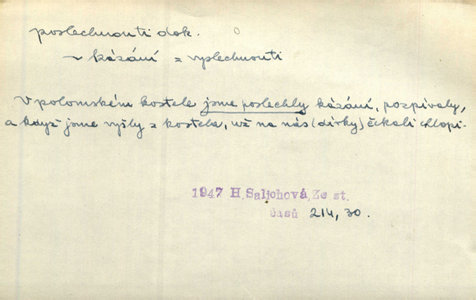 poslechnouti dok.
~ kázání = vyslechnouti
V polomském kostele jsme poslechly kázání, pozpívaly,
a když jsme vyšly z kostela, už na nás (dívky) čekali chlapi.
1947 H. Saljchová, Ze st.
časů 214, 30.